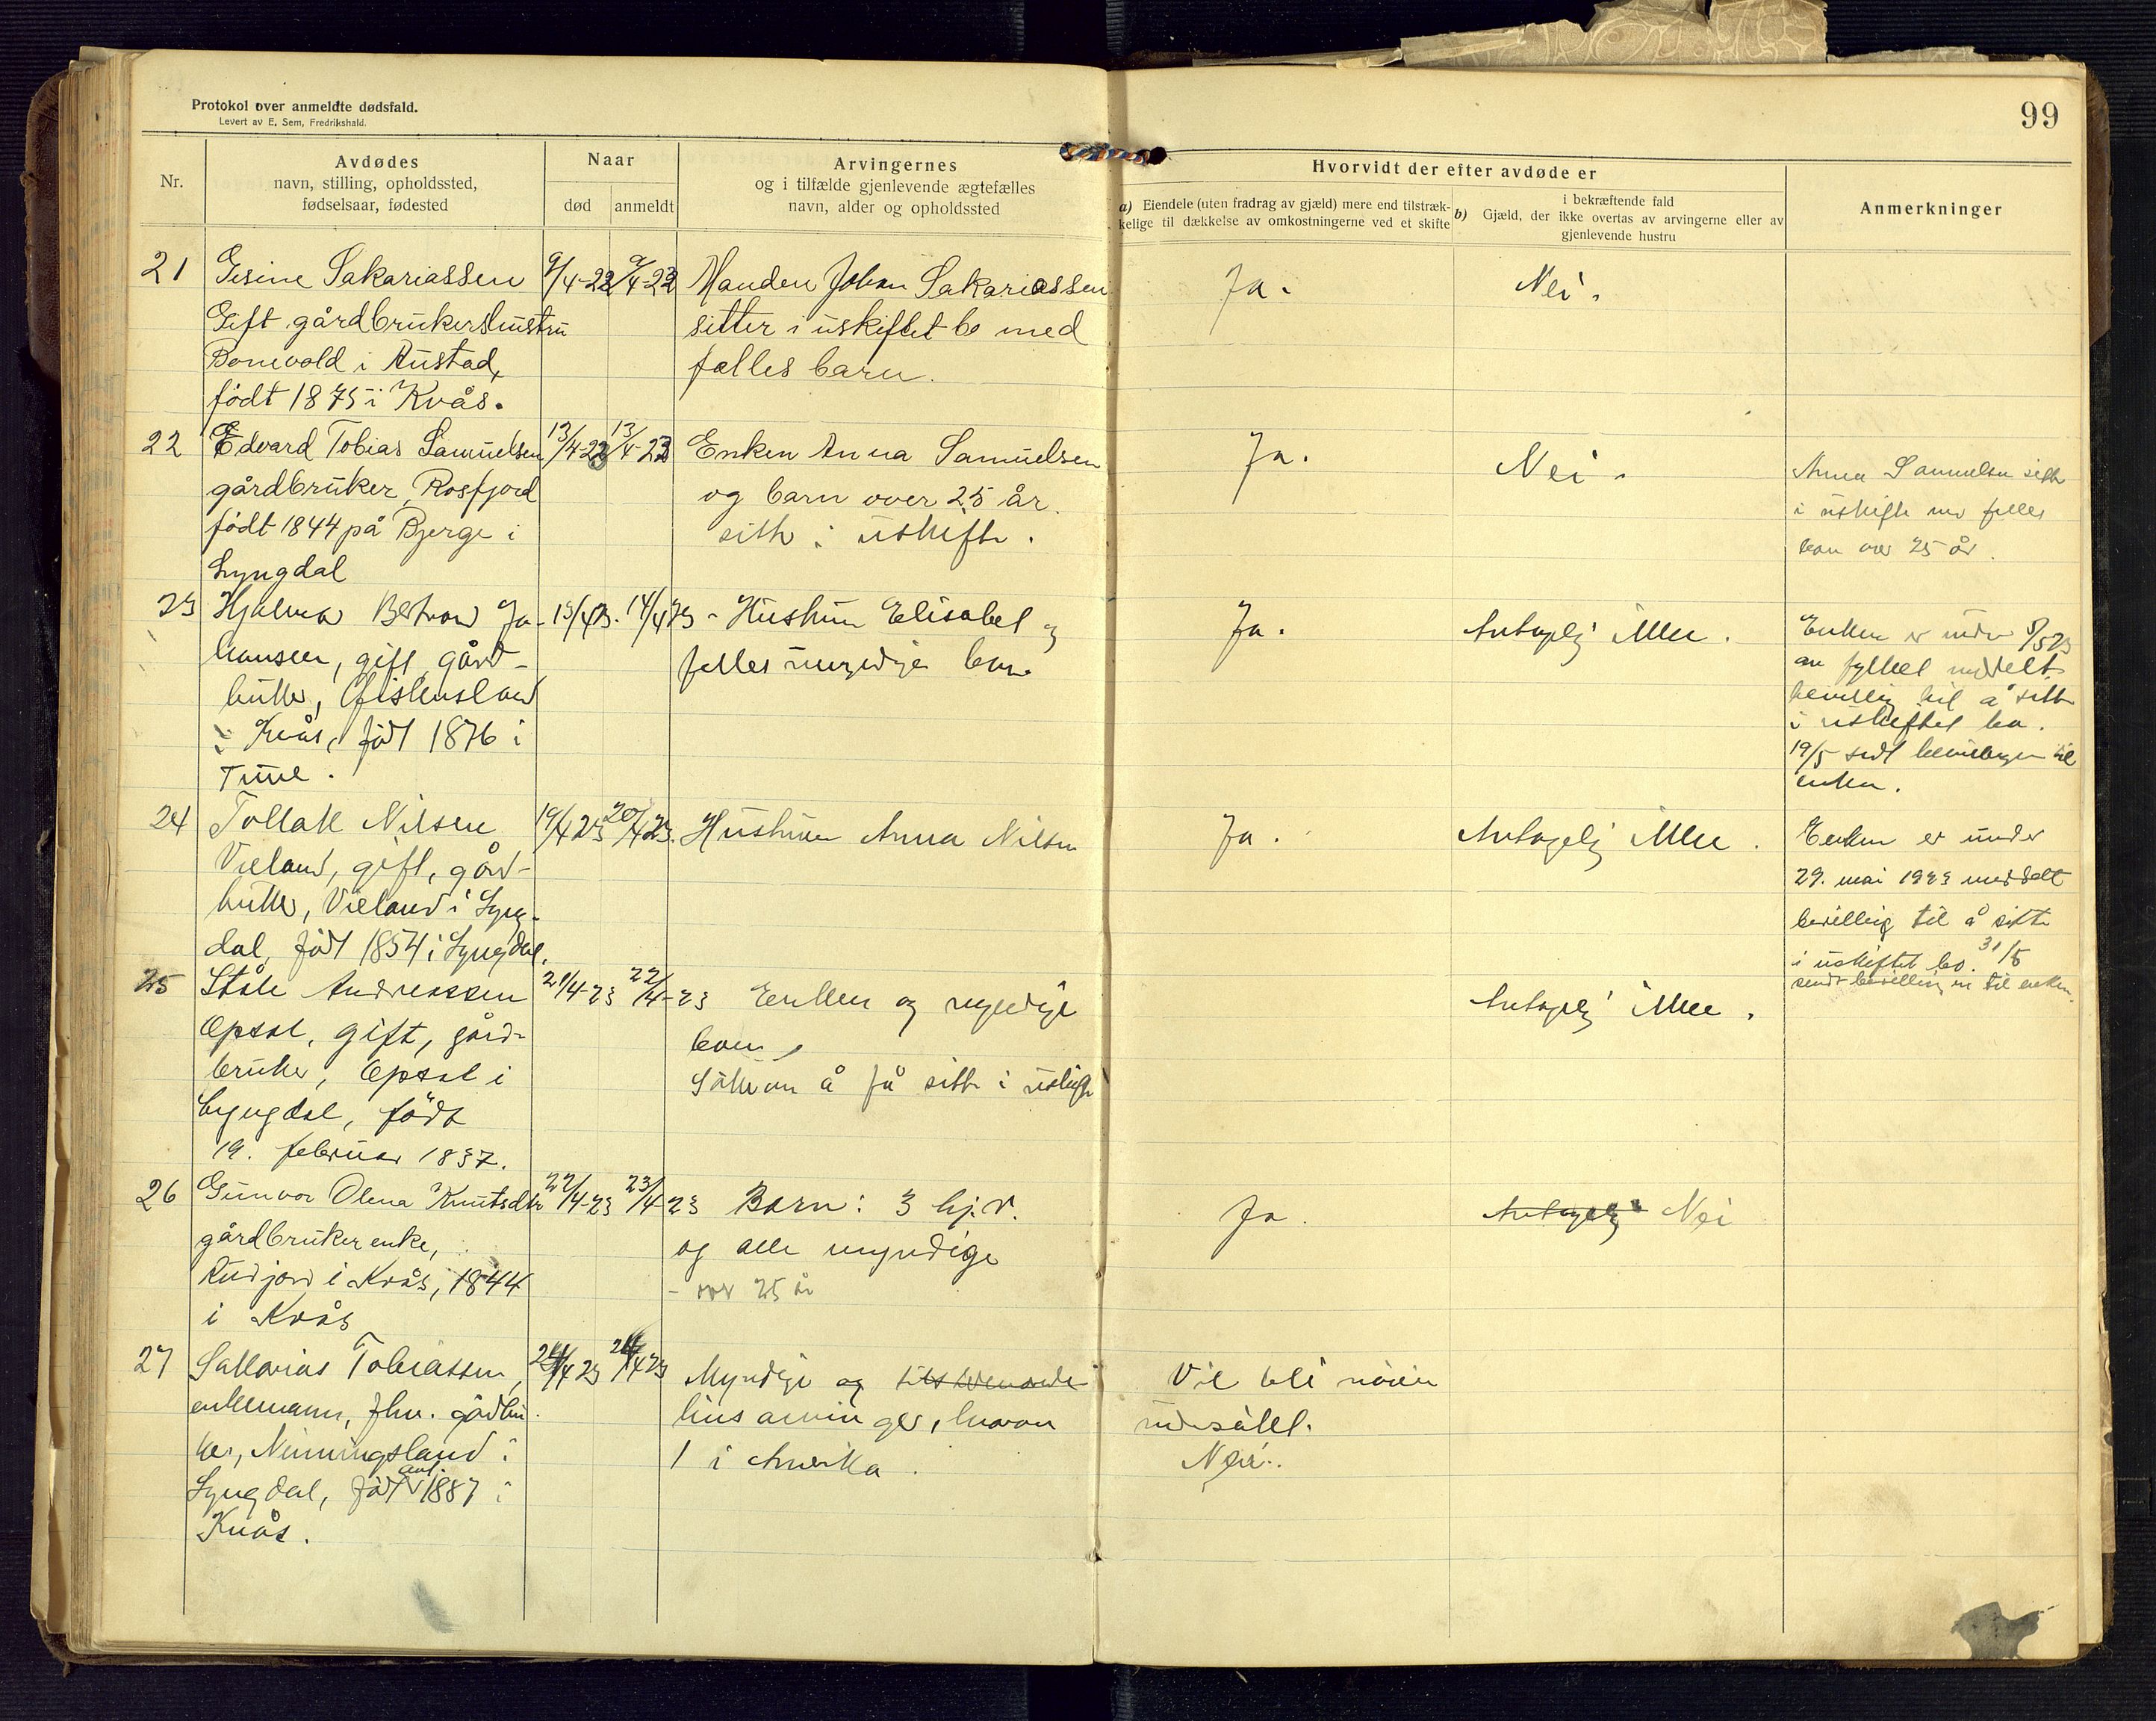 Protokol over anmeldte dødsfald.
Levert av E. Sem, Fredrikshald.
99
Nr.
Avdødes
navn, stilling, opholdssted,
fødselsaar, fødested
Naar
død
anmeldt
Arvingernes
og i tilfælde gjenlevende ægtefælles
navn, alder og opholdssted
Hvorvidt der efter avdøde er
a) Eiendele (uten fradrag av gjæld) mere end tilstræk-
kelige til dækkelse av omkostningerne ved et skifte
i bekræftende fald
b) Gjæld, der ikke overtas av arvingerne eller av
gjenlevende hustru
Anmerkninger
21
Gesine Sakariassen
Gift gårdbrukershustru
i Austad,
født 1875 i Kvås.
9/4-23
9/4-23
Manden Johan Sakariassen
sitter i uskiftet bo med
felles barn.
Ja.
Nei.
22
Edvard Tobias Samuelsen
gårdbruker, Rosfjord
født 1844 på Bjerge i
Lyngdal
13/4-23
13/4-23
Enken Anna Samuelsen
og barn over 25 år.
sitter i uskifte.
Ja.
Nei.
Anna Samuelsen sitter
i uskifte med felles
barn over 25 år.
23
Hjalmar Bertran Jo-
hansen, gift, gård-
bruker,
i Kvås, født 1876 i
Time.
13/4 23.
14/4 23
Hustruen Elisabet og
felles umyndige barn
Ja.
Antagelig ikke.
Enken er under 8/5 23
av fylket meddelt
bevilling til å sitte
i uskiftet bo.
19/5 sendt bevillingen til
enken.
24
Tollak Nilsen
Vieland, gift, gård-
bruker, Vieland i Lyng-
dal, født 1854 i Lyngdal.
19/4 23
20/4 23.
Hustruen Anna Nilsen
Ja.
Antagelig ikke.
Enken er under
29. mai 1923 meddelt
bevilling til å sitte
i uskiftet bo. 31/5
sendt bevillingen til enken.
25
Ståle Andreassen
Opsal, gift, gård-
bruker, Opsal i
Lyngdal, født
19. februar 1837.
21/4-23
22/4-23
Enken og myndige
barn,
Søker om å få sitte i uskifte
Antagelig ikke.
26
Gunvor Olena Knutsdtr
gårdbrukerenke,
Rudjord i Kvås, 1844
i Kvås
22/4-23
23/4-23
Barn: 3 hj.v.
og alle myndige
- over 25 år
Ja.
Antagelig Nei
27
Sakarias Tobiassen,
enkemann, fhv. gårdbru-
ker, i
Lyngdal, født ant. 1887 i
Kvås.
24/4 23
24/4 23
Myndige og
livsarvinger, hvorav
1 i Amerika.
Vil bli nøiere
undersøkt.
Nei.